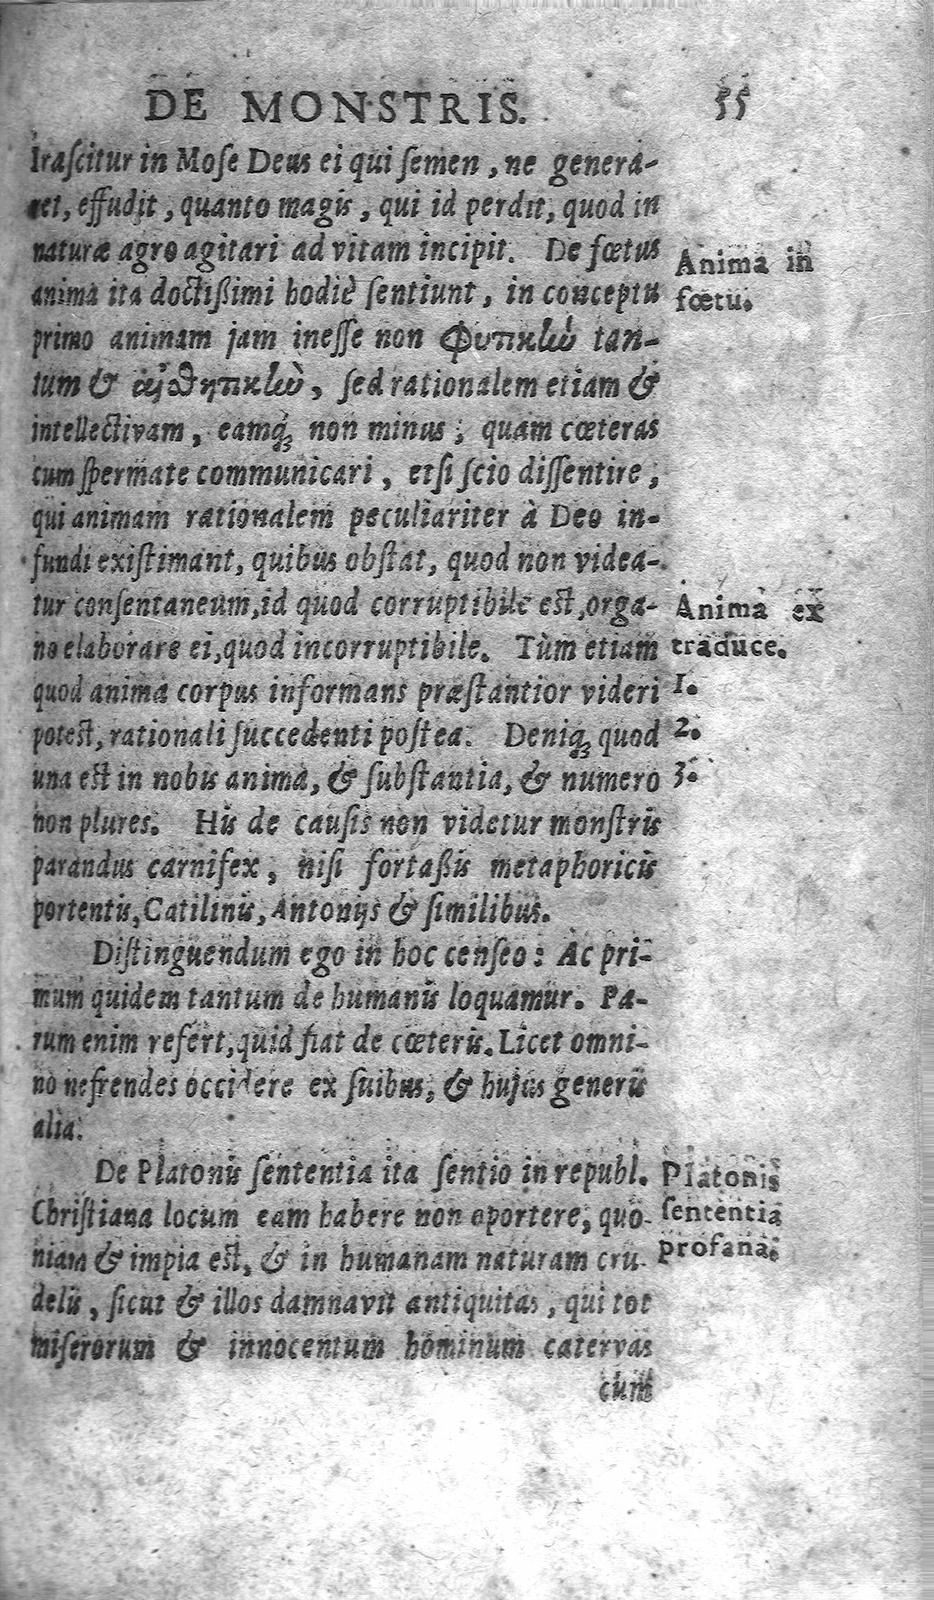 DE MONSTRIS. 55
Iraſcitur in Moſe Deus ei qui ſemen, ne genera-
ret, effudit, quanto magis, qui id perdit, quod in
naturæ agro agitari ad vitam incipit. De fœtus
anima ita doctißimi hodiè ſentiunt, in conceptu
primo animam jam ineſſe non Φυτικὼ tan-
tum & αἰσθητικὼ, ſed rationalem etiam &
intellectivam, eamq́; non minus, quam cœteras
cum ſpermate communicari, etſi ſcio diſſentire,
qui animam rationalem peculiariter à Deo in-
fundi exiſtimant, quibus obſtat, quod non videa-
tur conſentaneum, id quod corruptibile est, orga-
no elaborare ei, quod incorruptibile. Tùm etiam
quod anima corpus informans præſtantior videri
potest, rationali ſuccedenti poſtea. Deniq́; quod
una est in nobis anima, & ſubſtantia, & numero
non plures. His de cauſis non videtur monſtris
parandus carnifex, niſi fortaßis metaphoricis
portentis, Catilinis, Antonijs & ſimilibus.
Diſtinguendum ego in hoc cenſeo: Ac pri-
mum quidem tantum de humanis loquamur. Pa-
rum enim refert, quid fiat de cœteris. Licet omni-
no nefrendes occidere ex ſuibus, & hujus generis
alia.
De Platonis ſententia ita ſentio in republ.
Chriſtiana locum eam habere non oportere, quo-
niam & impia est, & in humanam naturam cru-
delis, ſicut & illos damnavit antiquitas, qui tot
miſerorum & innocentum hominum catervas
cum
Anima in
fœtu.
Anima ex
traduce.
1.
2.
3.
Platonis
ſententia
profana.